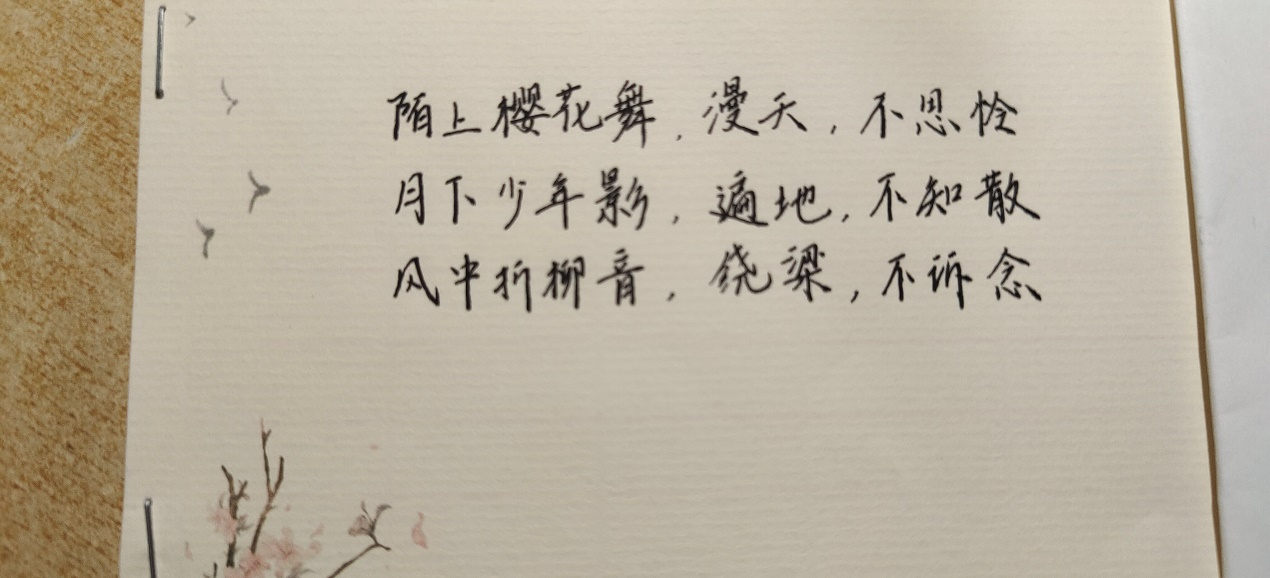 陌上樱花舞，漫天，不思怜
月下少年影，遍地，不知散
风中折柳音，绕梁，不诉念